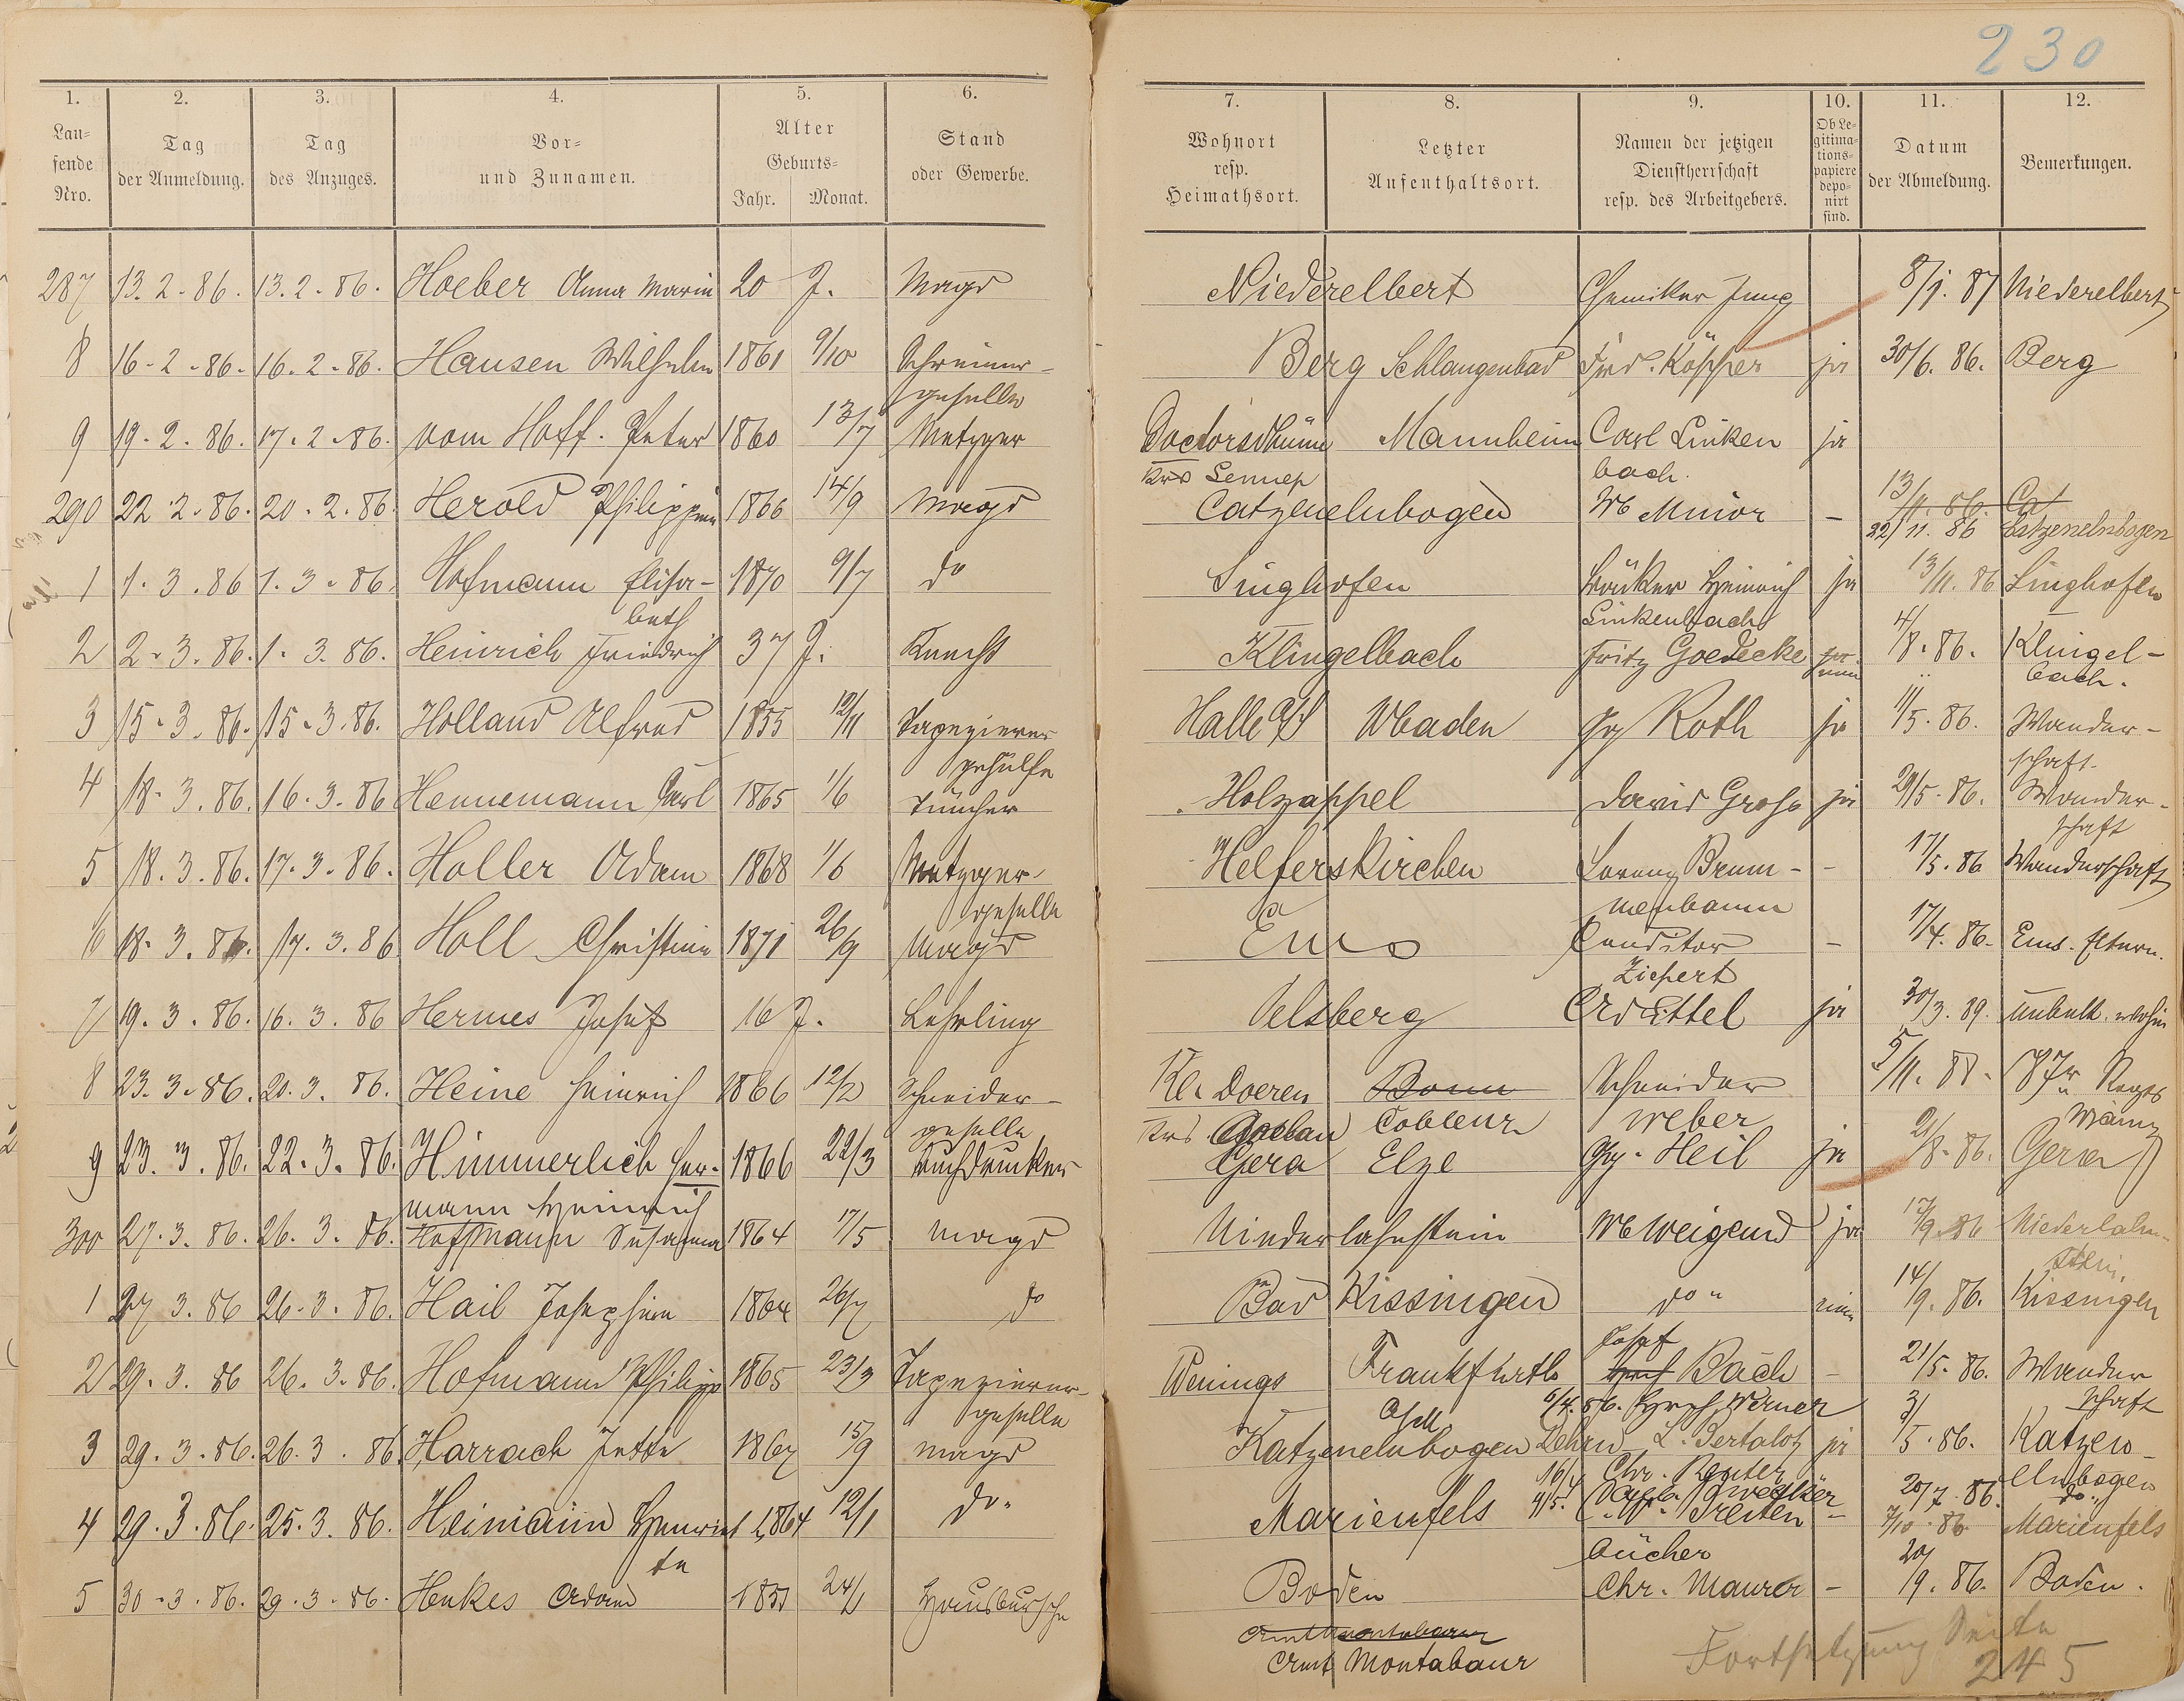 230
1. 2. 3. 4. 5. 6. 7. 8. 9. 10. 11. 12.
Laufende Nro. Tag der Anmeldung. Tag des Anzuges. Vor- und Zunamen. Alter Geburts- Jahr. Monat. Stand oder Gewerbe. Wohnort resp. Heimathsort. Letzter Aufenthaltsort. Namen der jetzigen Dienstherrschaft resp. des Arbeitgebers. Ob Legitimationspapiere deponirt sind. Datum der Abmeldung. Bemerkungen.
287 13.2.86. 13.2.86. Hoeber Anna Maria 20 J. Magd Niederelbert Chemiker Jung 8/1. 87 Niederelbert
8 16.2.86. 16.2.86. Hausen Wilhelm 1861 9/10 Schreiner- Berg Schlangenbad Frd. Köpper ja 30/6. 86. Berg
geselle
9 19.2.86. 17.2.86. vom Hoff. Peter 1860 13/7 Metzger Doctorsthürn Mannheim Carl Linken ja
Krs Lennep bach.
290 22.2.86. 20.2.86. Herold Philippine 1866 14/9 Magd Catzenelnbogen Wb Minor - 13/11. 86. Cat
22/11. 86 Catzenelnbogen
1 1.3.86 1.3.86. Hofmann Elisa- 1870 9/7 do Singhofen Bäcker Heinrich ja 13/11. 86 Singhofen
beth Linkenbach
2 2.3.86. 1.3.86. Heinrich Friedrich 37 J. Knecht Klingelbach Fritz Goedecke ja 4/8. 86. Klingel-
nein bach.
3 15.3.86. 15.3.86. Holland Alfred 1855 12/11 Tapezierer Halle a/S Wbaden Gg Roth ja 11/5. 86. Wander-
gehülfe schaft.
4 18.3.86. 16.3.86 Hennemann Carl 1865 1/6 Tüncher Holzappel David Groß ja 29/5. 86. Wander-
schaft
5 18.3.86. 17.3.86. Holler Adam 1868 1/6 Metzger- Helferskirchen Lorenz Brum- - 17/5. 86 Wanderschaft
geselle menbaum
6 18.3.86. 17.3.86 Holl Christine 1871 26/9 Magd Ems Conditor - 17/4. 86. Ems. Eltern.
Ziepert
7 19.3.86. 16.3.86 Hermes Josef 16 J. Lehrling Velsberg Ad Ittel ja 30/3. 89. unbek. wohin
8 23.3.86. 20.3.86. Heine Heinrich 1866 12/2 Schneider- Kl. Doeren Bonn Schneider 5/11. 88. 87r Regts
geselle Krs. Goslar Coblenz Weber Mainz
9 23.3.86. 22.3.86. Himmerlich Her- 1866 22/3 Buchdrucker Gera Elze Gg. Heil ja 21/8. 86. Gera
mann Heinrich
300 27.3.86. 26.3.86. Hoffmann Susanna 1864 17/5 Magd Niederlahnstein Wb Weigand ja 17/9. 86 Niederlahn-
stein.
1 27.3.86 26.3.86. Hail Josephine 1864 26/7 do Bad Kissingen do " nein 14/9. 86. Kissingen
Josef
2 29.3.86 26.3.86. Hofmann Philipp 1865 23/3 Tapezierer- Wenings Frankfurt Bach - 21/5. 86. Wander
geselle 6/4. 86. Werner schaft
3 29.3.86. 26.3.86 Harrach Jette 1867 15/9 Magd Katzenelnbogen L. Bertaloz ja 3/5. 86. Katzen-
16/4 Chr. Reuter elnbogen
4 29.3.86. 25.3.86. Heimann Henriet 1864 12/1 do. Marienfels 4/5. C. W. Breiten - 20/7. 86. do.
te bücher 7/10. 86. Marienfels
5 30.3.86. 29.3.86. Henkes Adam 24/1 Hausbursche Boden Chr. Maurer - 20/9. 86. Boden.
Amt Montabaur
Amt Montabaur
Fortsetzung Seite
245